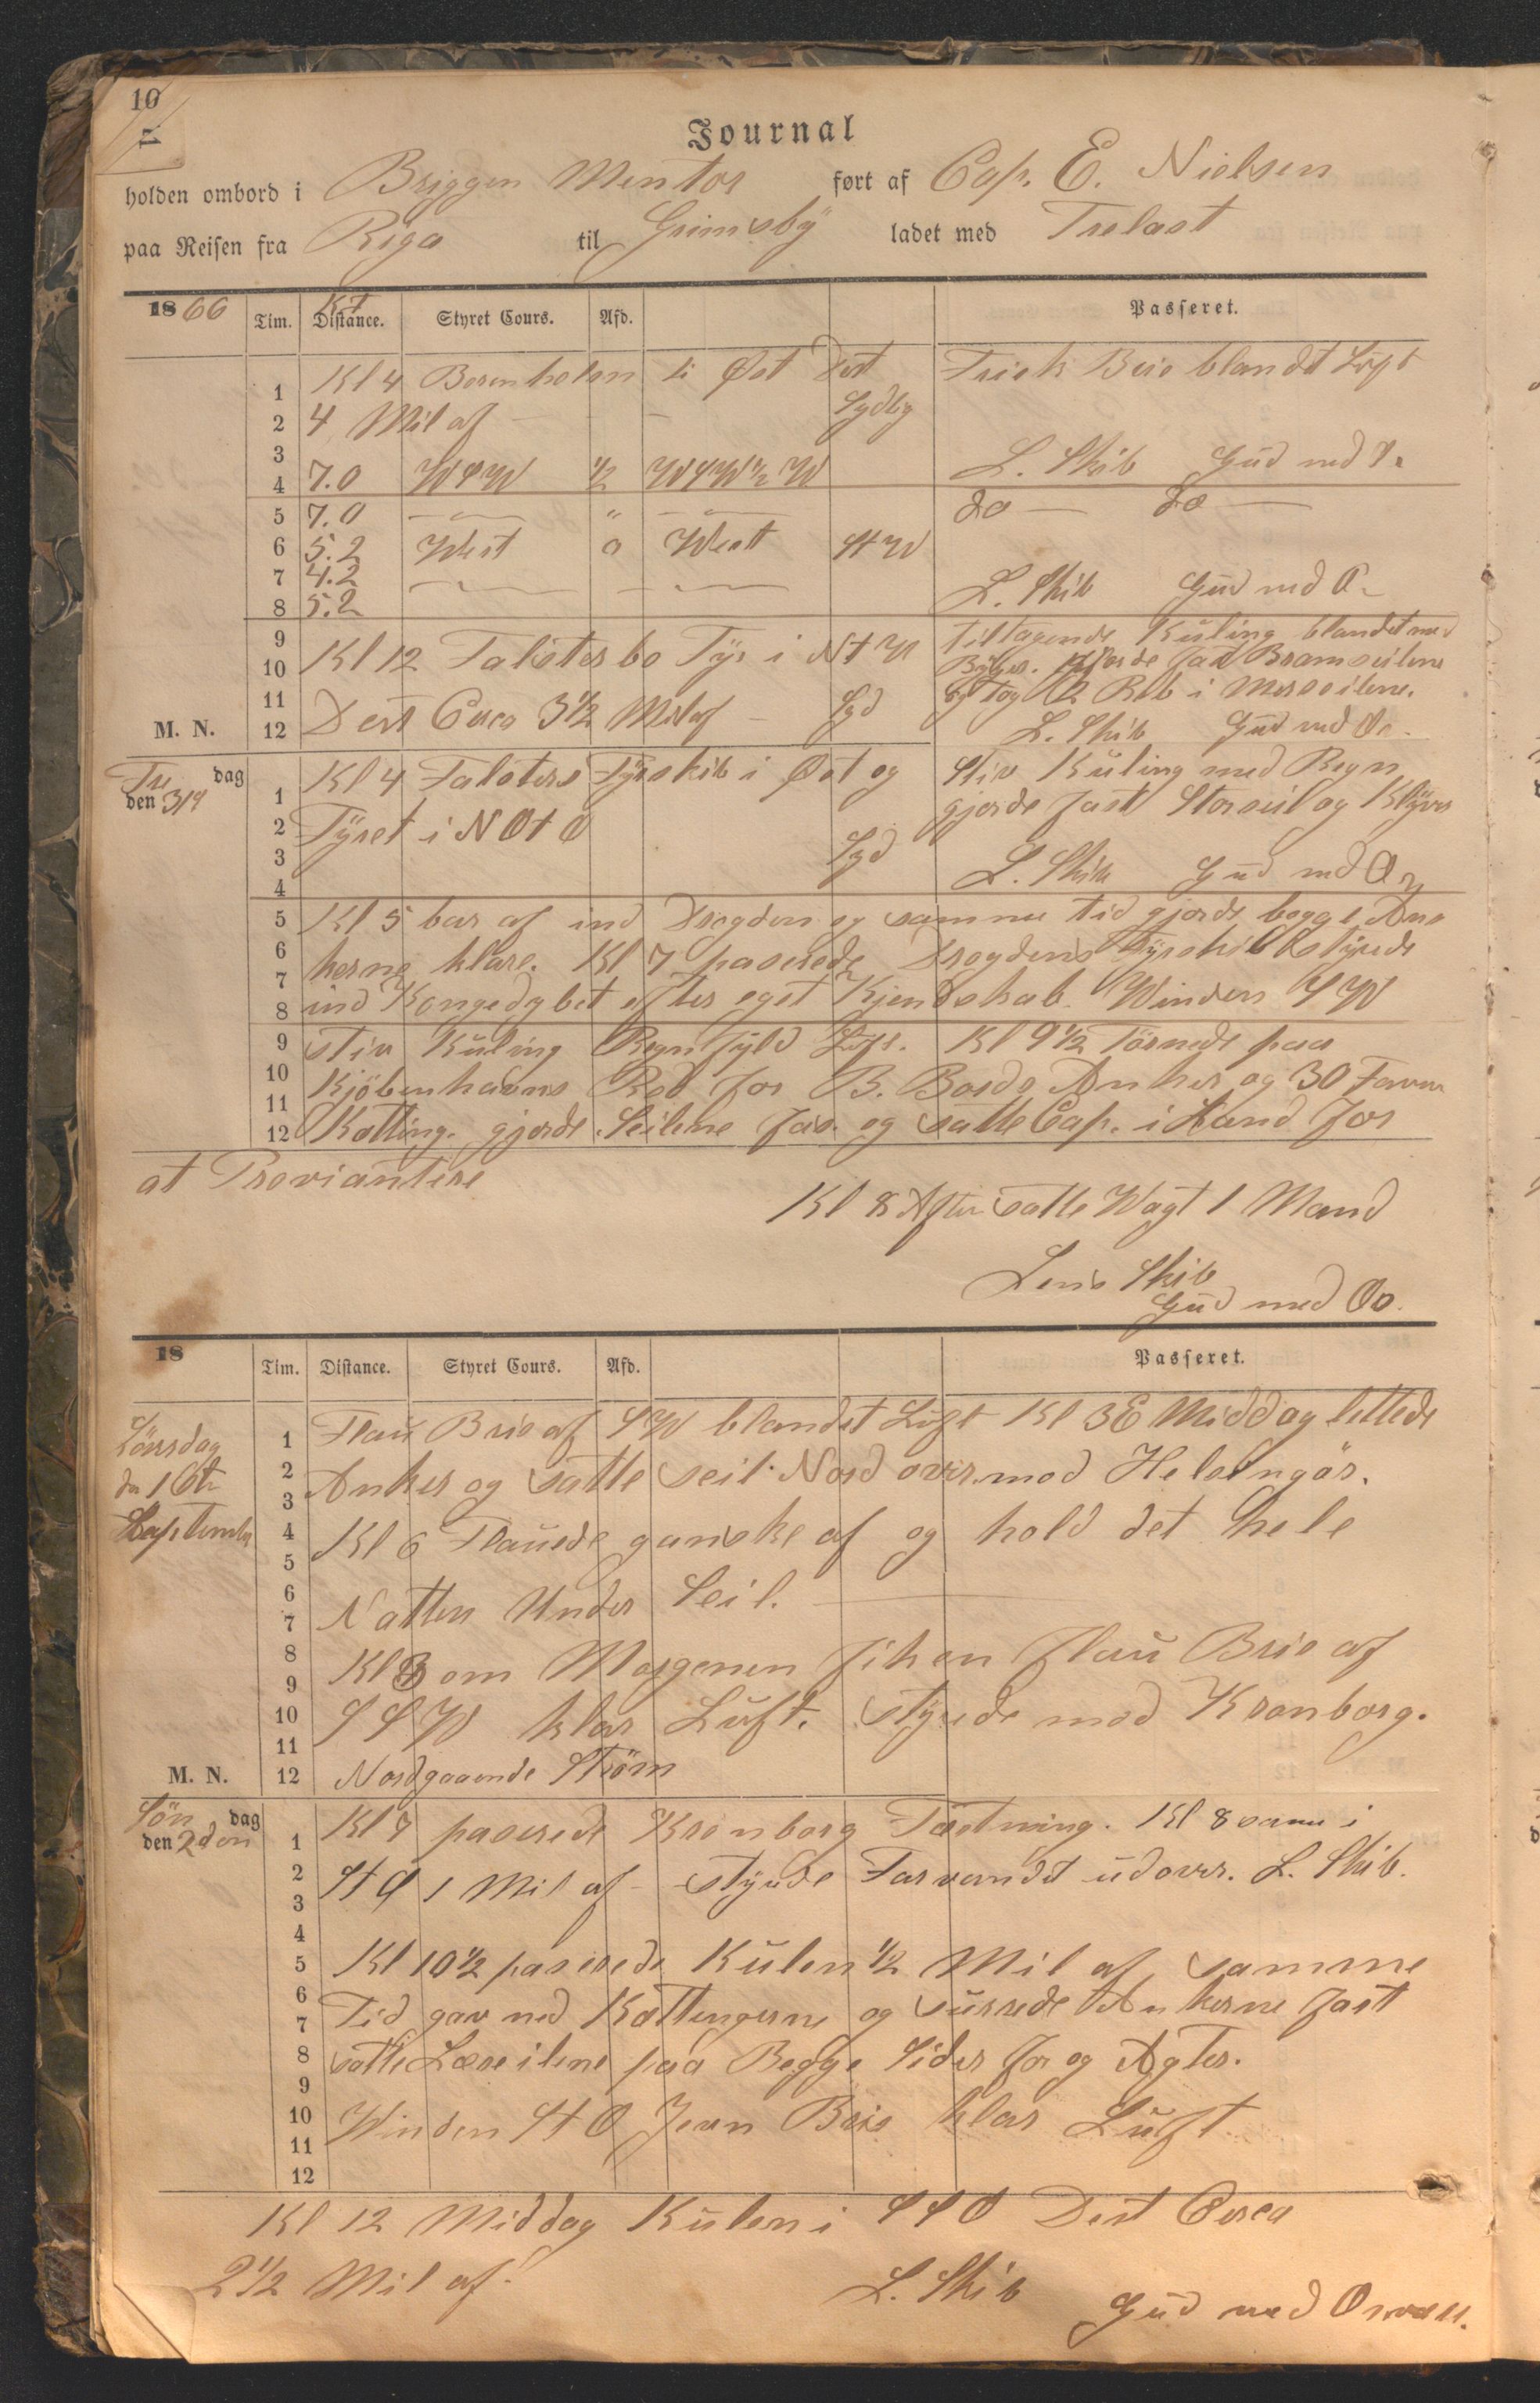 10
Journal
holden ombord i Briggen Mentor ført af Cap. E. Nielsen
paa Reisen fra Riga til Grimsbÿ ladet med Trelast
1866 Tim. Distance. Styret Cours. Afd. Passeret.
1 Kl 4 Borenholm i Øst Dest Frisk Bris blandt Luft
2 4 Mil af Sydlig
3
4 7.0 WSW ½ WSW½W L. Skib Gud med
5 7.0 — " — do — do —
6 5.2 West 0 West StW
7 4.2
8 5.2 L. Skib Gud med O
9 tiltagende Kuling blandet med
10 Kl 12 Falsterbo Fÿr i NtW Bÿger. gjorde fast Bramseilene
11 og tog 2 Reb i Merseilene.
M. N. 12 Dest Circa 3½ Mil af — Syd L. Skib Gud med Os.
Fre dag
den 31t
1 Kl 4 Falsters Fÿrskib i Øst og Stiv Kuling med Regn
gjorde fast Storseil og Klÿver
2 Fÿret i NOtO
3 Syd
4 L. Skib Gud med O
5 Kl 5 bar af ind Drogden og samme tid gjorde begge An
6 kerne klare. Kl 7 passerede Drogdens Fÿrskib stÿrede
7
8 ind Kongedybet efter eget Kjendskab. Winden SW
9 stiv Kuling Regnfÿld Luft. Kl 9½ Törnede paa
10 Kjöbenhavns Red for B. Bords Anker og 30 Favne
11
12 Kætting. gjorde Seilene fas. og satte Cap. i Land for
at Proviantere
Kl 8 Aften satte Wagt 1 Mand
Lens Skib
Gud med Os.
18 Tim. Distance. Styret Cours. Afd. Passeret.
Lörsdag
den 1ste
September
1 Flau Bris af SW blandet Luft Kl 3 E Middag lettede
2 Anker og satte seil Nord over mod Helsingör.
3
4 Kl 6 Flauede ganske af og hold det hele
5
6 Natten Under Seil.
7
8 Kl 3 om Morgenen fik en flau Bris af
9
10 SSW klar Luft. stÿrede mod Kronborg.
11
M. N. 12 Nordgaaende Ström
Sön dag
den 2den
1 Kl 7 passerede Kronborg Fæstning. Kl 8 samme i
2 StO 1 Mil af - stÿrede Farvandet udover. L. Skib.
3
4
5 Kl 10½ passerede Kulen ½ Mil af, samme
6 Tid gav ned Kættingerne og surrede Ankerne fast
7
8 satte Læseilene paa Begge Sider for og Agter.
9
10 Winden StO Jevn Bris klar Luft
11
12
Kl 12 Middag Kulen i SSO Dest Circa
2½ Mil af. L. Skib Gud med Os